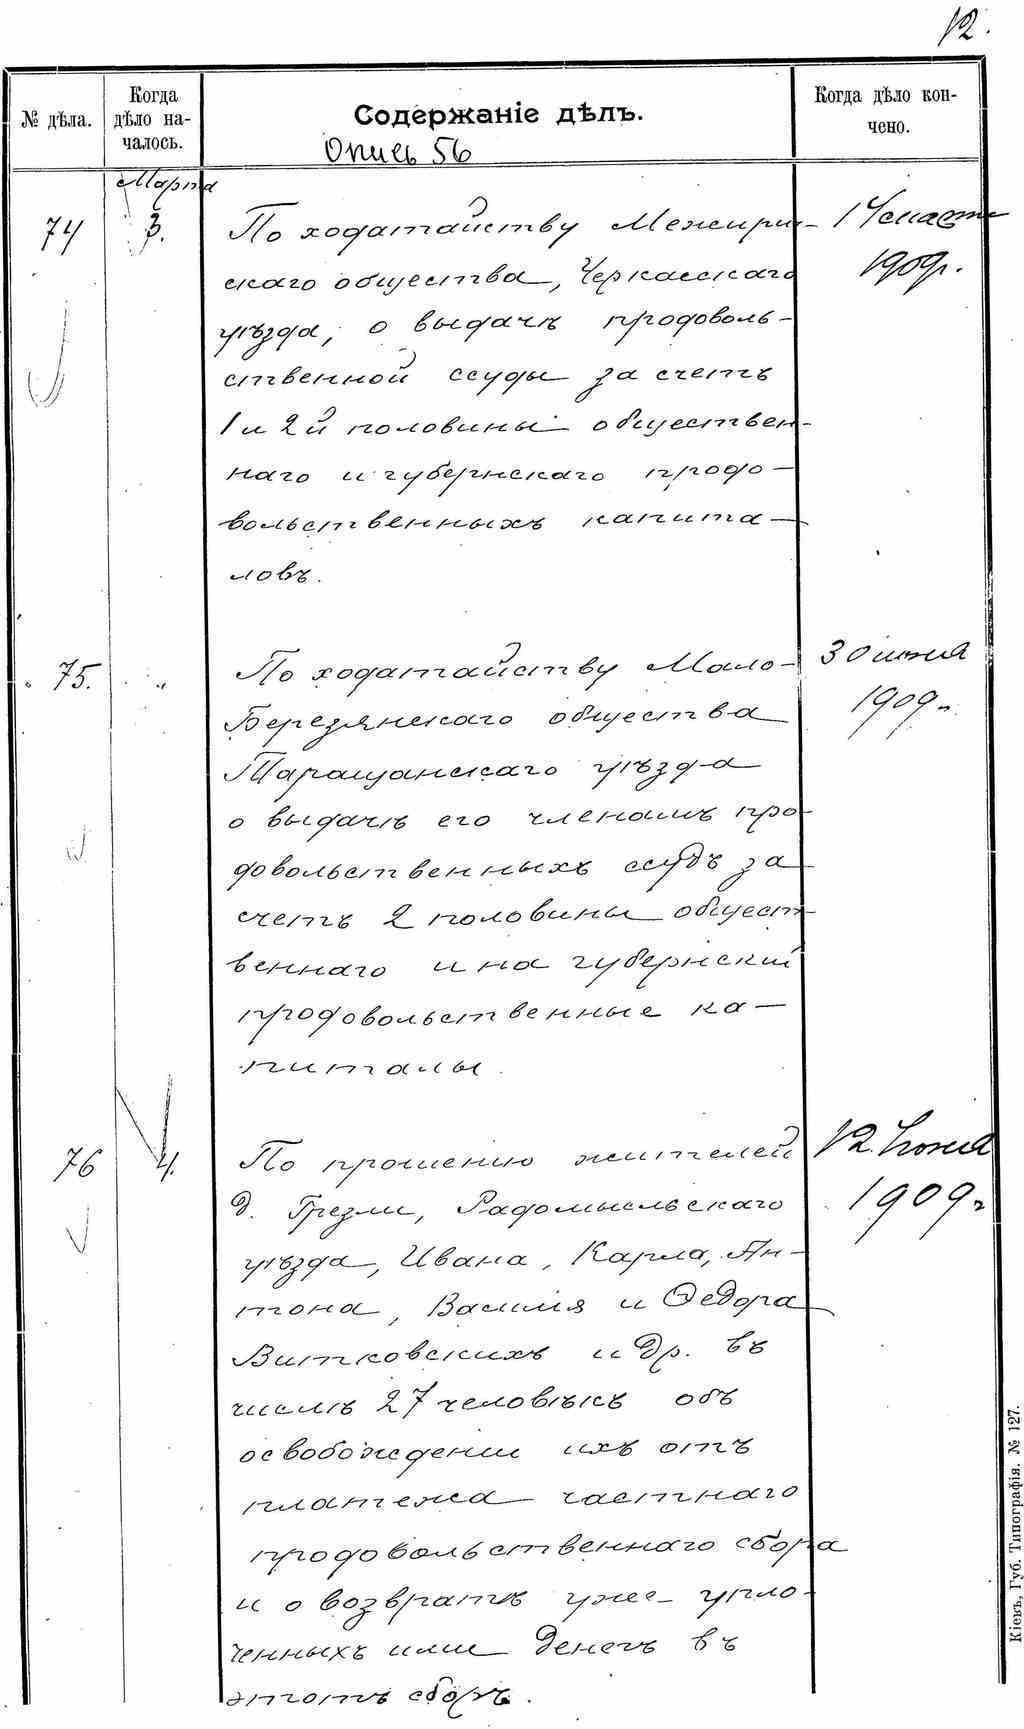 12.
№ дѣла.
Когда
дѣло на-
чалось.
Содержаніе дѣлъ.
Опись 56
Когда дѣло кон-
чено.
Марта
74
3.
По ходатайству Межири-
скаго общества, Черкасскаго
уѣзда, о выдачѣ продоволь-
ственной ссуды за счетъ
1 и 2й половины обществен-
наго и губернскаго продо-
вольственныхъ капита-
ловъ.
1
1909г.
75.
"
По ходатайству Мало-
Березянскаго общества
Таращанскаго уѣзда
о выдачѣ его членамъ про-
довольственныхъ ссудъ за
счетъ 2 половины общест-
веннаго и на губернскій
продовольственные ка-
питалы.
30 июня
1909 г.
76
4.
По прошенію жителей
д. Грезли, Радомысльскаго
уѣзда, Ивана, Карла, Ан-
тона, Василія и Ѳедора
Витковскихъ и др. въ
числѣ 27 человѣкъ объ
освобожденіи ихъ отъ
платежа частнаго
продовольственнаго сбора
и о возвратѣ уже упло-
ченныхъ ими денегъ въ
этотъ сборъ.
12 Июня
1909 г
Кіевъ, Губ. Типографія. № 127.